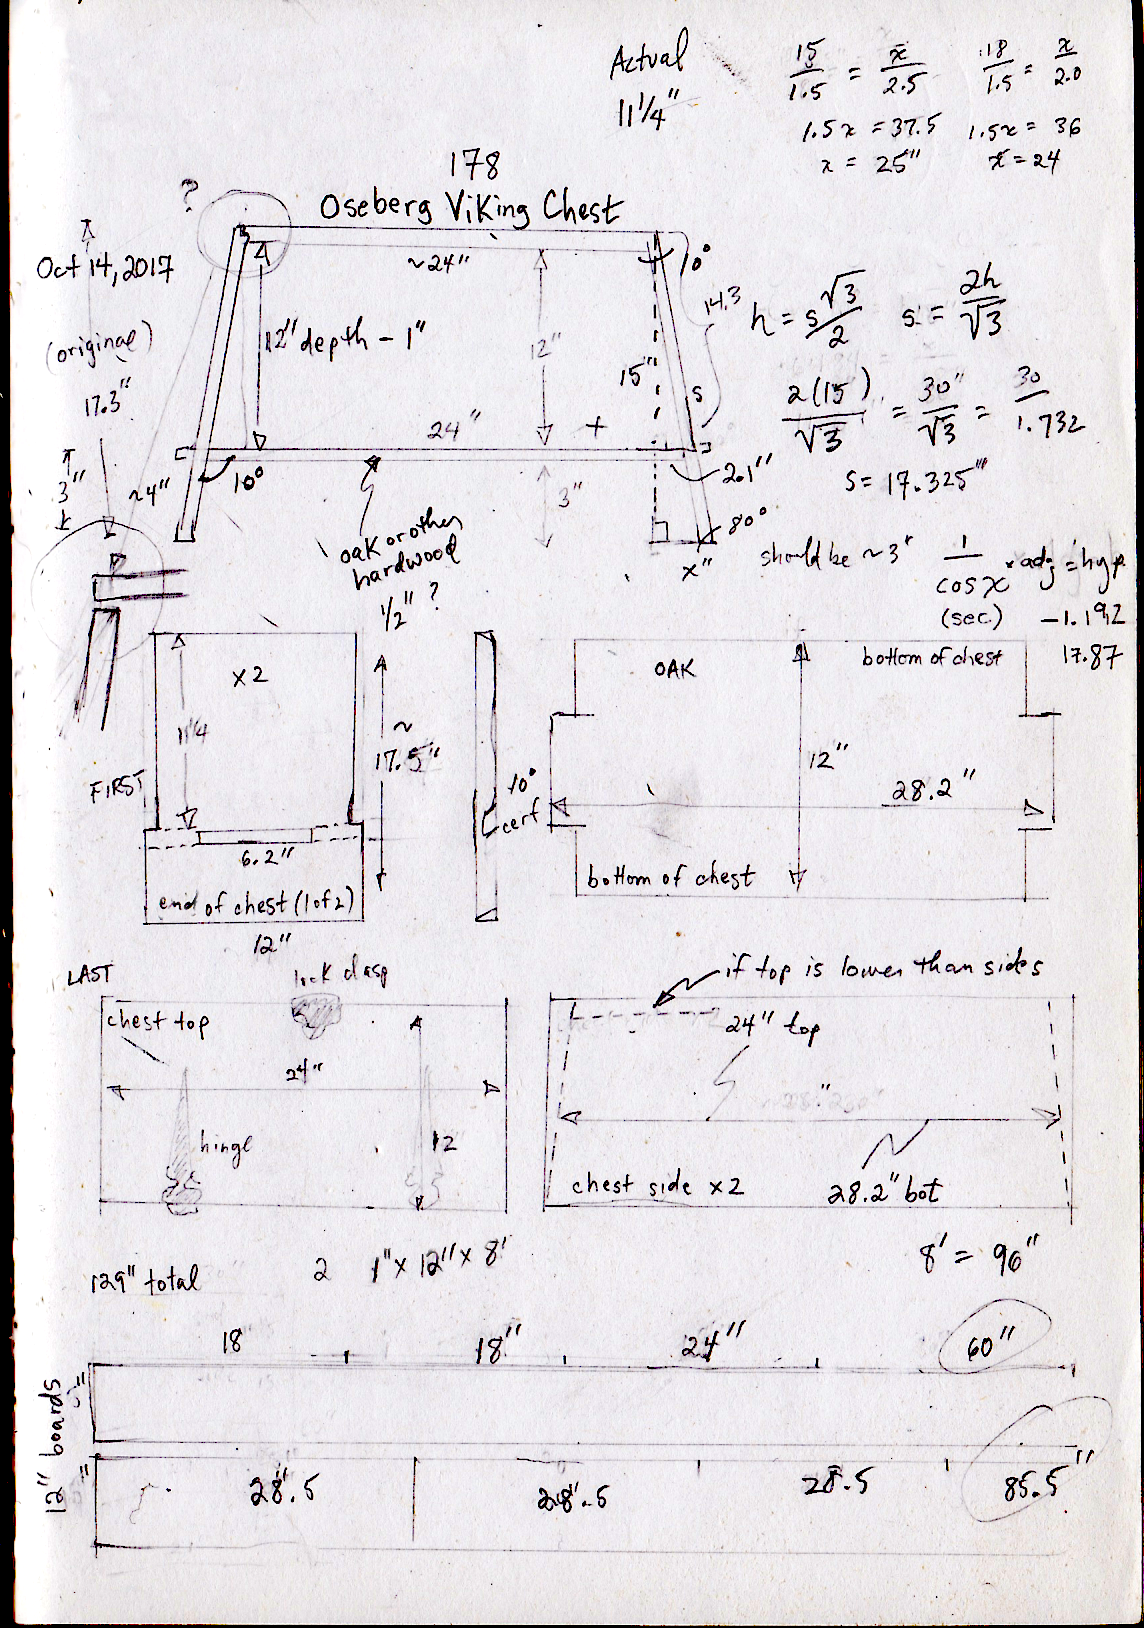 Actual
11 1/4"
15/1.5 = x/2.5
1.5x = 37.5
x = 25"
18/1.5 = x/2.0
1.5x = 36
x = 24
178
Oseberg Viking Chest
?
Oct 14, 2017
(original)
17.3"
~24"
10°
12" depth - 1"
12"
15"
14.3
s
h = s√3/2
s = 2h/√3
2(15)/√3 = 30"/√3 = 30/1.732
s = 17.325"
24"
+
3"
~4"
10°
3"
2.1"
80°
x"
should be ~3"
1/cos x · adj = hyp
(sec)
-1.192
17.87
oak or other
hardwood
1/2" ?
x2
11 1/4
FIRST
~
17.5"
6.2"
end of chest (1 of 2)
12"
10°
cerf
OAK
bottom of chest
12"
28.2"
bottom of chest
LAST
lock clasp
chest top
24"
hinge
12
if top is lower than sides
24" top
chest side x2
28.2" bot
129" total
2 1" x 12" x 8'
8' = 96"
18
18"
24"
60"
12" boards
28.5
28.5
28.5
85.5"